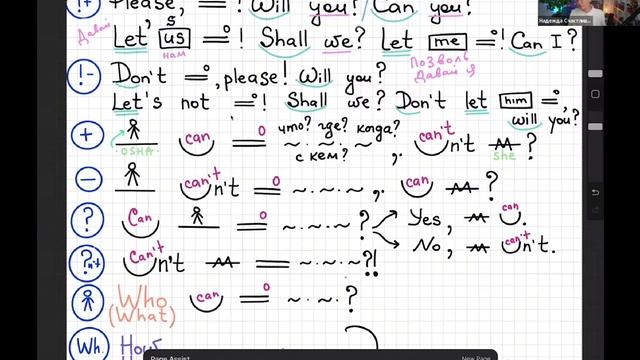 !+ Please, ! Will you? / Can you?
Давай
Let's
us ! Shall we? Let me ! Can I?
нам
Позволь
Давай я
!- Don't , please! Will you?
Let's not ! Shall we? Don't let him , will you?
+ can что? где? когда? can't n't ?
OSHA с кем? she
− can't n't , can ?
? Can ? Yes, can.
No, can't n't.
?n't Can't n't ?!
Who can ?
(What)
Wh. How
Надежда Счастлив...
Page Assist New Page